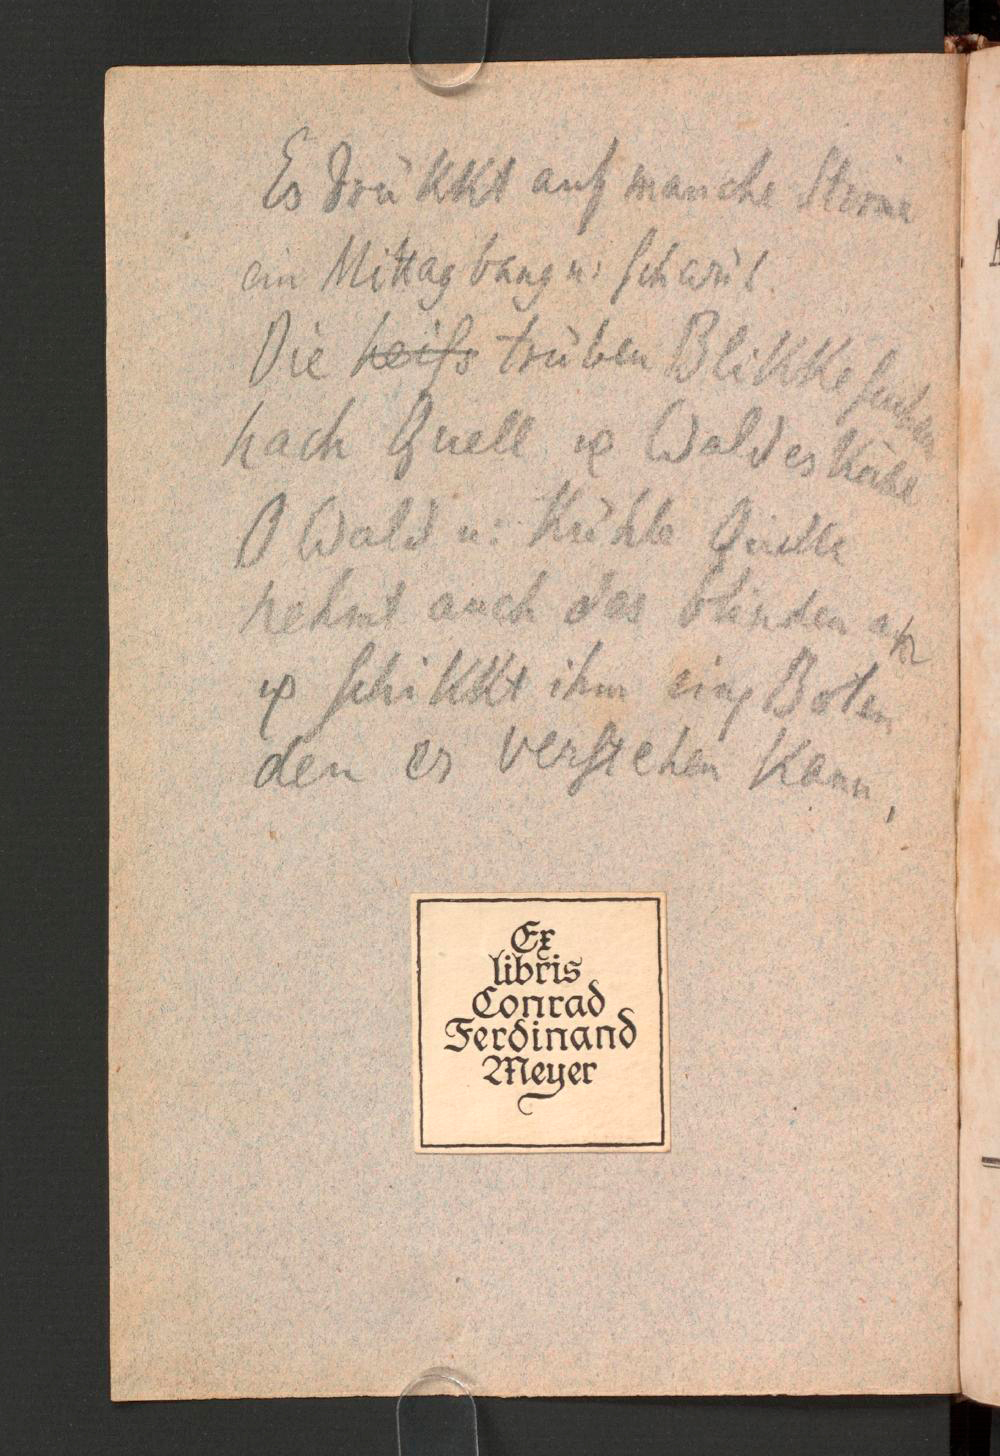 Es drükkt auf manche Stirne
ein Mittag bang u: schwül.
Die heiß trüben Blikke suchen
nach Quell u Waldes Kühle
O Wald u: Kühle Quelle
nehmt auch das blinden an
u schikkt ihm einen Boten
den er verstehen kann,
Ex
libris
Conrad
Ferdinand
Meyer